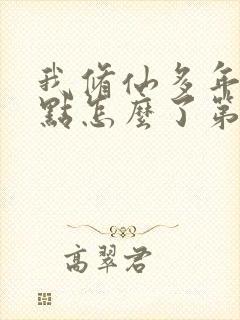 我修仙多年
點怎麼了第
高翠君